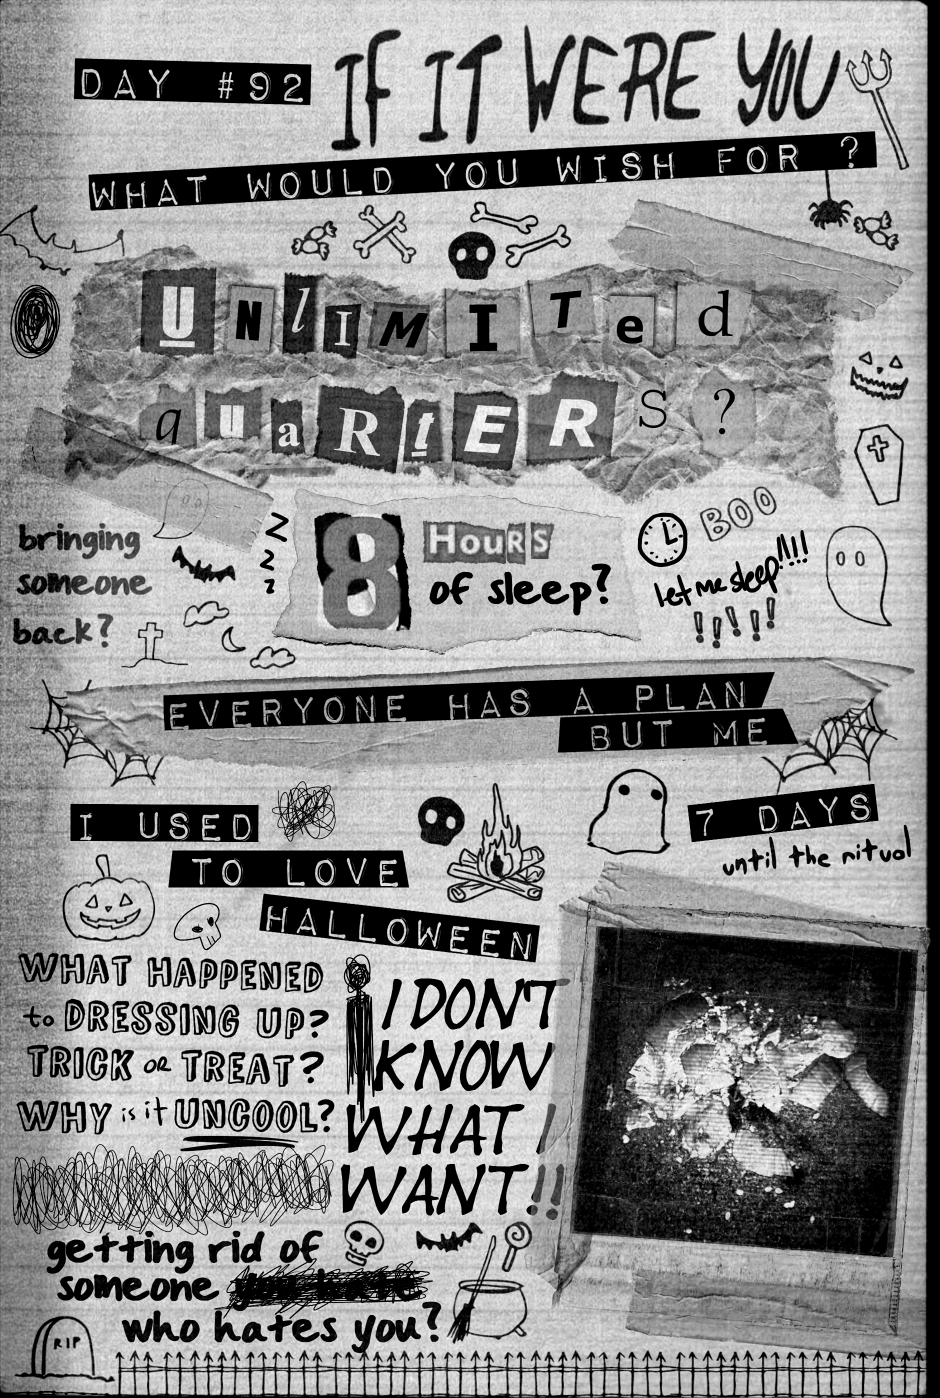 DAY #92
IF IT WERE YOU
WHAT WOULD YOU WISH FOR ?
UNlIMITed
quaRtERS?
bringing
someone
back?
z
z
z
8 HouRS
of sleep?
BOO
let me sleep!!!!
!!!!!
EVERYONE HAS A PLAN
BUT ME
I USED
TO LOVE
HALLOWEEN
7 DAYS
until the ritual
WHAT HAPPENED
to DRESSING UP?
TRICK OR TREAT?
WHY is it UNCOOL?
I DON'T
KNOW
WHAT I
WANT!!
getting rid of
someone you hate
who hates you?
RIP